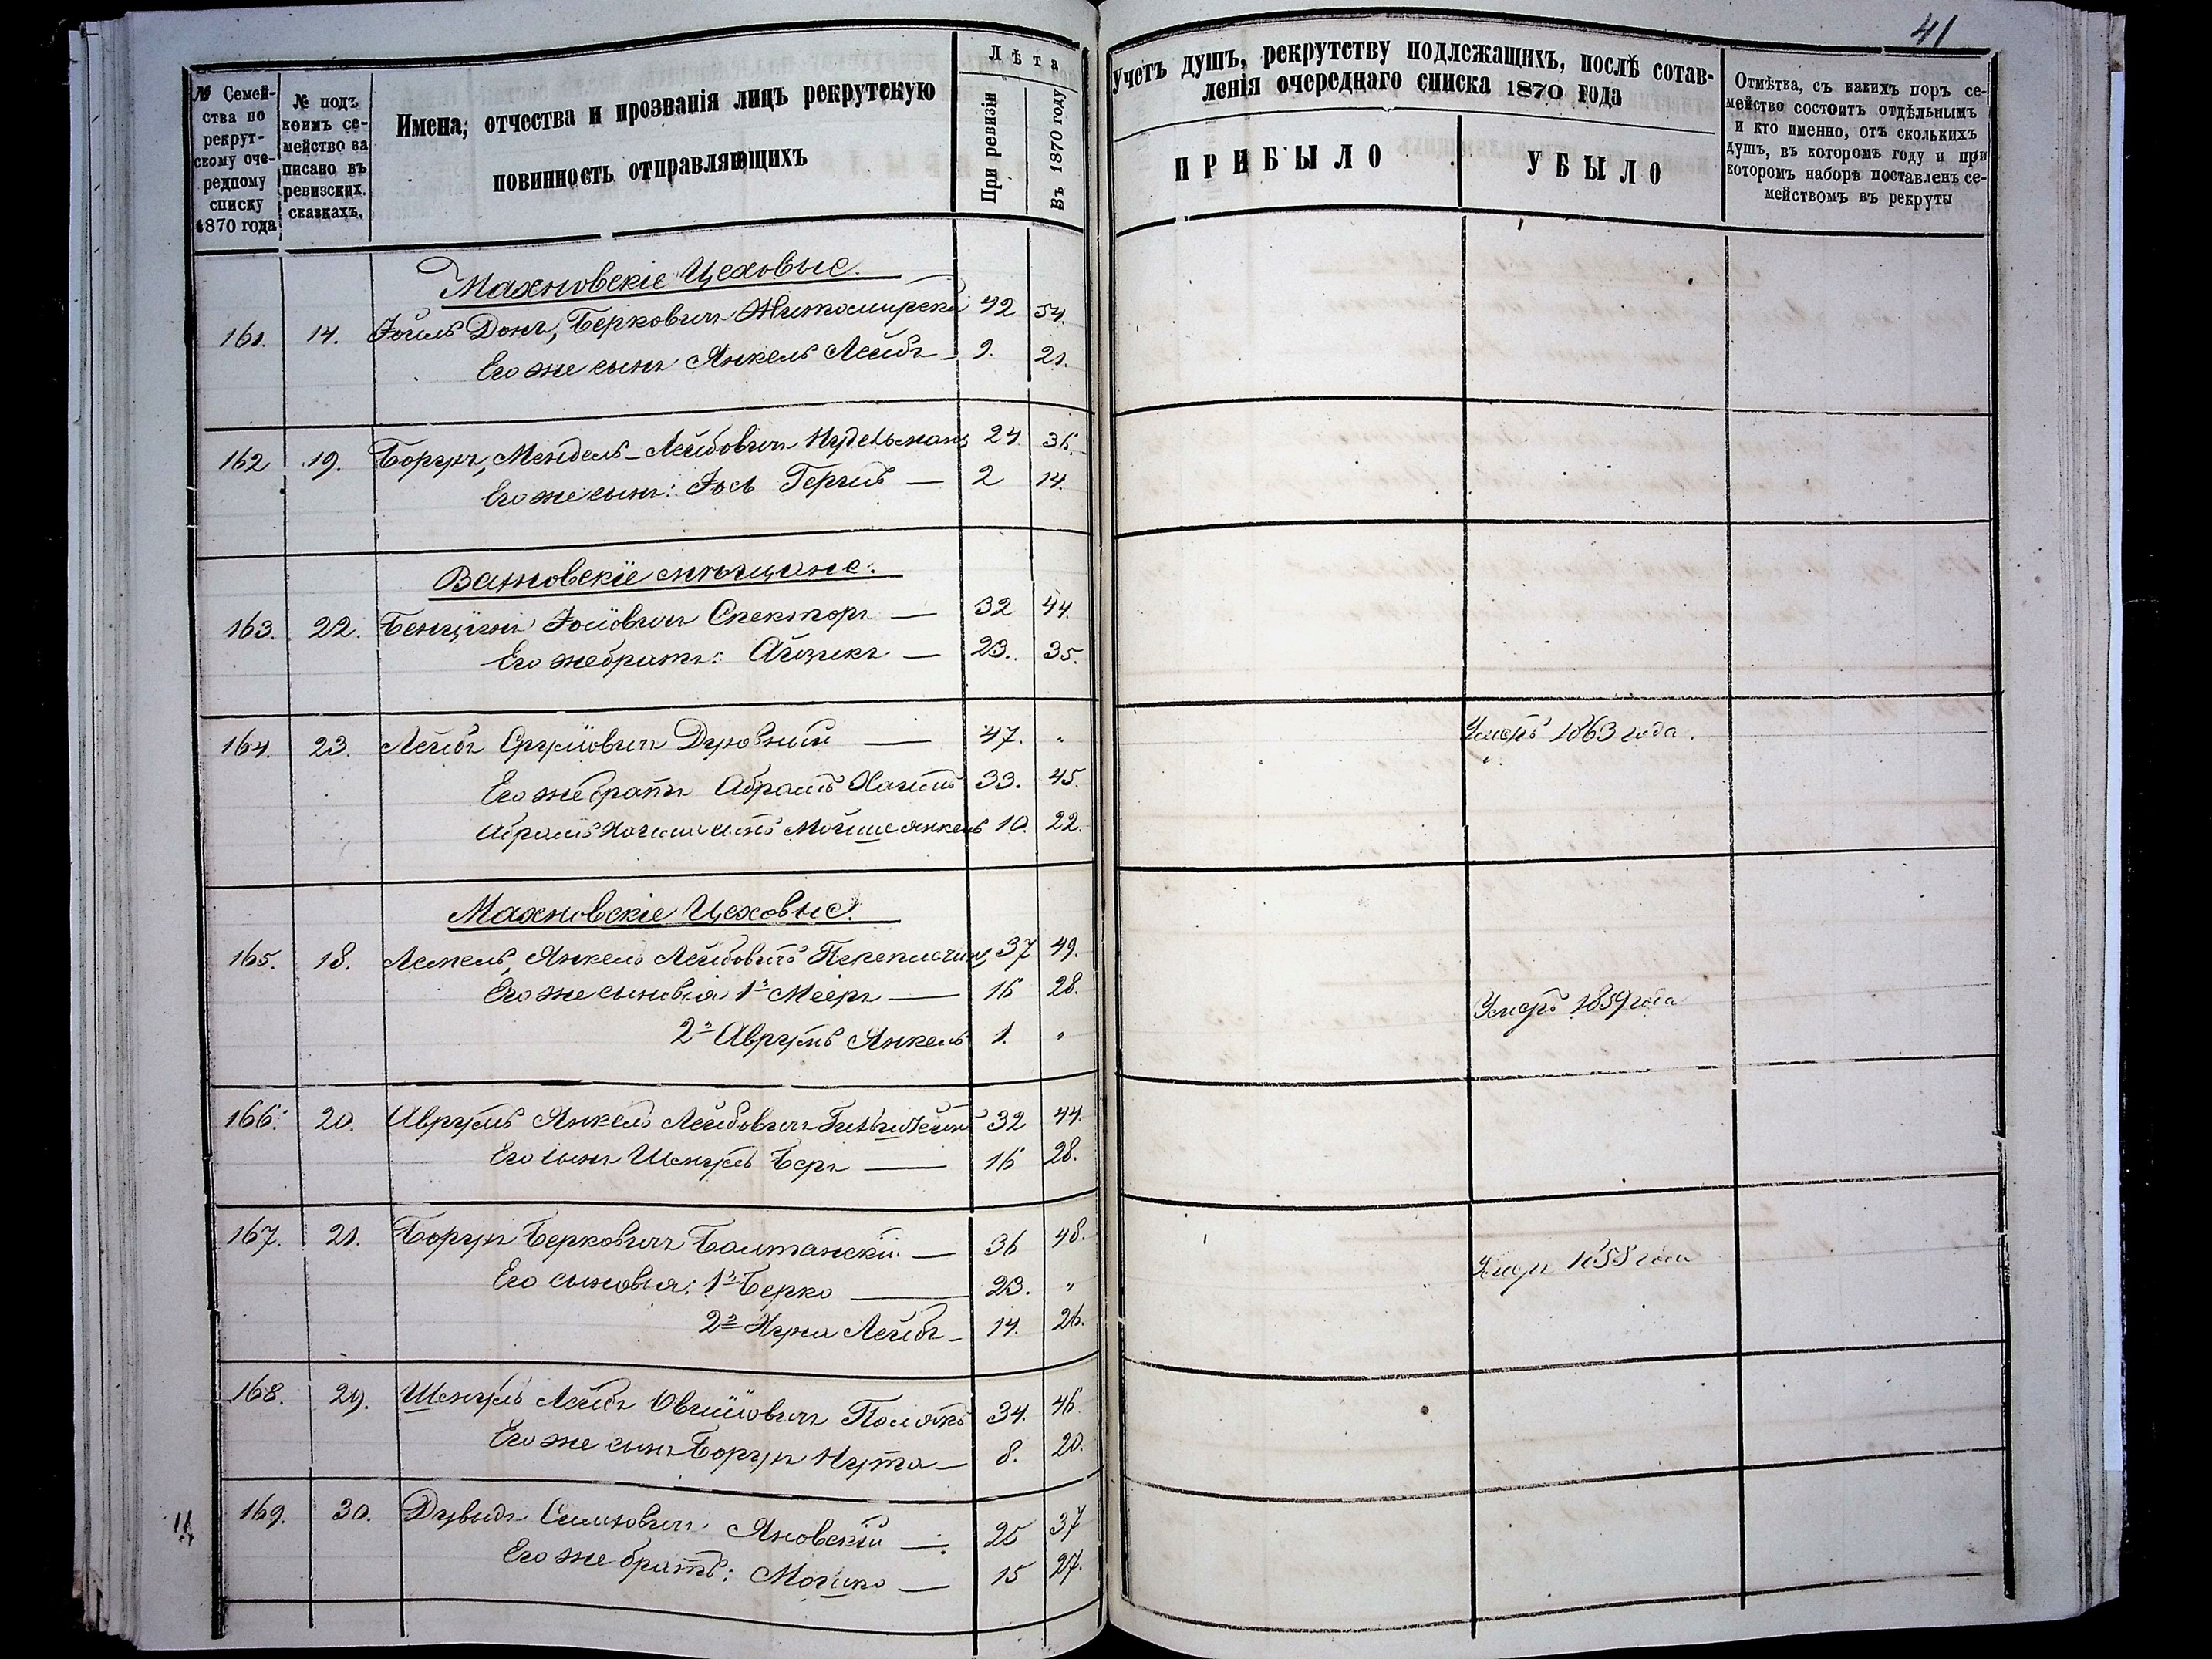 41
№ Семейства по рекрутскому очередному списку 1870 года
№ подъ коимъ семейство записано въ ревизских. сказкахъ.
Имена, отчества и прозванія лицъ рекрутскую
повинность отправляющихъ
Лѣта
При ревизіи
Въ 1870 году
Учетъ душъ, рекрутству подлежащихъ, послѣ сотав-
ленія очереднаго списка 1870 года
ПРИБЫЛО
УБЫЛО
Отмѣтка, съ какихъ поръ се-
мейство состоитъ отдѣльнымъ
и кто именно, отъ сколькихъ
душъ, въ котором году и при
которомъ наборѣ поставленъ се-
мействомъ въ рекруты
Махновскіе Цеховые.
161. 14. Іойль Донъ, Берковичъ Житомирскій 42 54.
Его же сынъ Янкель Лейбъ 9. 21.
162 19. Борухъ, Мендель-Лейбовичъ Нудельманъ 24 36.
Его же сынъ: Іось Гершъ — 2 14.
Вахновскіе мѣщане:
163. 22. Бенціонъ Іосіовичъ Спекторъ — 32 44.
Его же братъ: Айзикъ — 23. 35.
164. 23. Лейбъ Сруліовичъ Духовный — 47. " Умеръ 1863 года.
Его же братъ Абрамъ Хаимъ 33. 45.
Абрамъ Хаима сынъ Мойше Янкель 10. 22.
Махновскіе Цеховые.
165. 18. Лемель, Янкель Лейбовичъ 37 49.
Его же сыновья 1й Мееръ — 16 28.
2й Аврумъ Янкель 1. " Умеръ 1859 года
166. 20. Аврумъ Янкель Лейбовичъ 32 44.
Его сынъ Шмуль Беръ — 16 28.
167. 21. Борухъ Берковичъ Балтянскій — 36 48.
Его сыновья: 1й Берко — 23. " Умеръ 1858 года
2й Нухим Лейбъ — 14. 26.
168. 29. Шмуль Лейбъ Овшіовичъ Полякъ 34. 46
Его же сынъ Борухъ Нута — 8. 20.
169. 30. Дувидъ Симховичъ Яновскій — 25 37
Его же братъ: Мошко — 15 27.